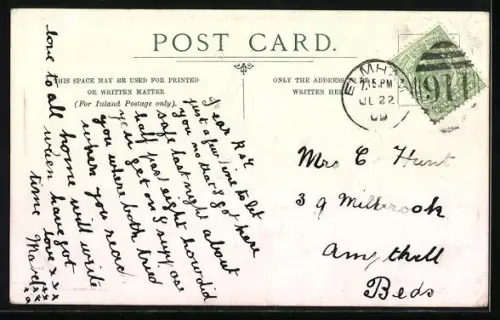 POST CARD.
THIS SPACE MAY BE USED FOR PRINTED
OR WRITTEN MATTER.
(For Inland Postage only).
ONLY THE ADDRESS TO BE
WRITTEN HERE.
7.15 PM
JL 22
09
Dear
just a few lines to let
you no that I got here
safe last night about
half past eight how did
you get on I suppose
you where both tired
when you read
home will write
when have got
time
love to all
love xxx
Mabel
Mrs C Hunt
39 Millbrook
Ampthill
Beds